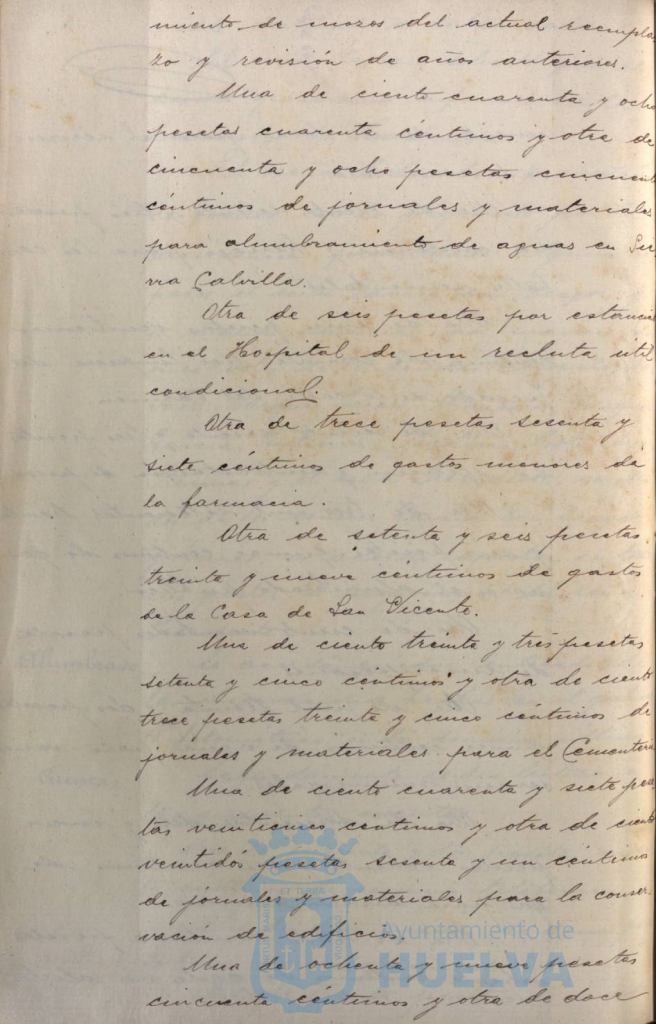 miento de mozos del actual reempla
zo y revisión de años anteriores.
Una de ciento cuarenta y ocho
pesetas cuarenta céntimos y otra de
cincuenta y ocho pesetas cincuenta
céntimos de jornales y materiales
para alumbramiento de aguas en Sie
rra Calvilla.
Otra de seis pesetas por estancia
en el Hospital de un recluta útil
condicional.
Otra de trece pesetas sesenta y
siete céntimos de gastos menores de
la farmacia.
Otra de setenta y seis pesetas
treinta y nueve céntimos de gastos
de la Casa de San Vicente.
Una de ciento treinta y tres pesetas
setenta y cinco céntimos y otra de ciento
trece pesetas treinta y cinco céntimos de
jornales y materiales para el Cementerio
Una de ciento cuarenta y siete pese
tas veinticinco céntimos y otra de ciento
veintidós pesetas sesenta y un céntimos
de jornales y materiales para la conser-
vación de edificios.
Una de ochenta y nueve pesetas
cincuenta céntimos y otra de doce
Ayuntamiento de
HUELVA